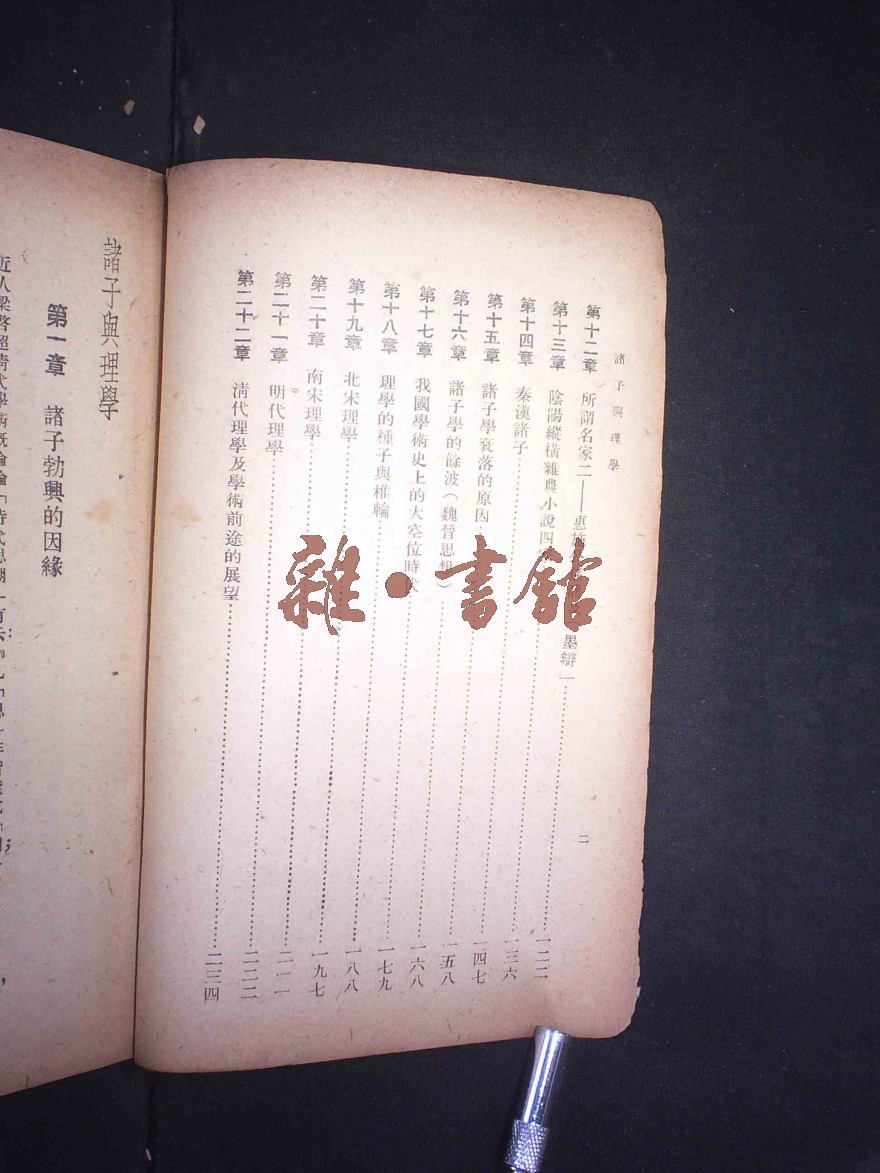 諸子與理學
第十二章 所謂名家二——惠施 墨辯」……一二二
第十三章 陰陽縱橫雜農小說四……一三六
第十四章 秦漢諸子……一四七
第十五章 諸子學衰落的原因……一五八
第十六章 諸子學的餘波(魏晉思想)……一六八
第十七章 我國學術史上的大空位時代……一七九
第十八章 理學的種子與椎輪……一八八
第十九章 北宋理學……一九七
第二十章 南宋理學……二一一
第二十一章 明代理學……二二二
第二十二章 清代理學及學術前途的展望……二三四
二
諸子與理學
第一章 諸子勃興的因緣
近人梁啓超清代學術概論論「時代思潮」有云:
雜·書館